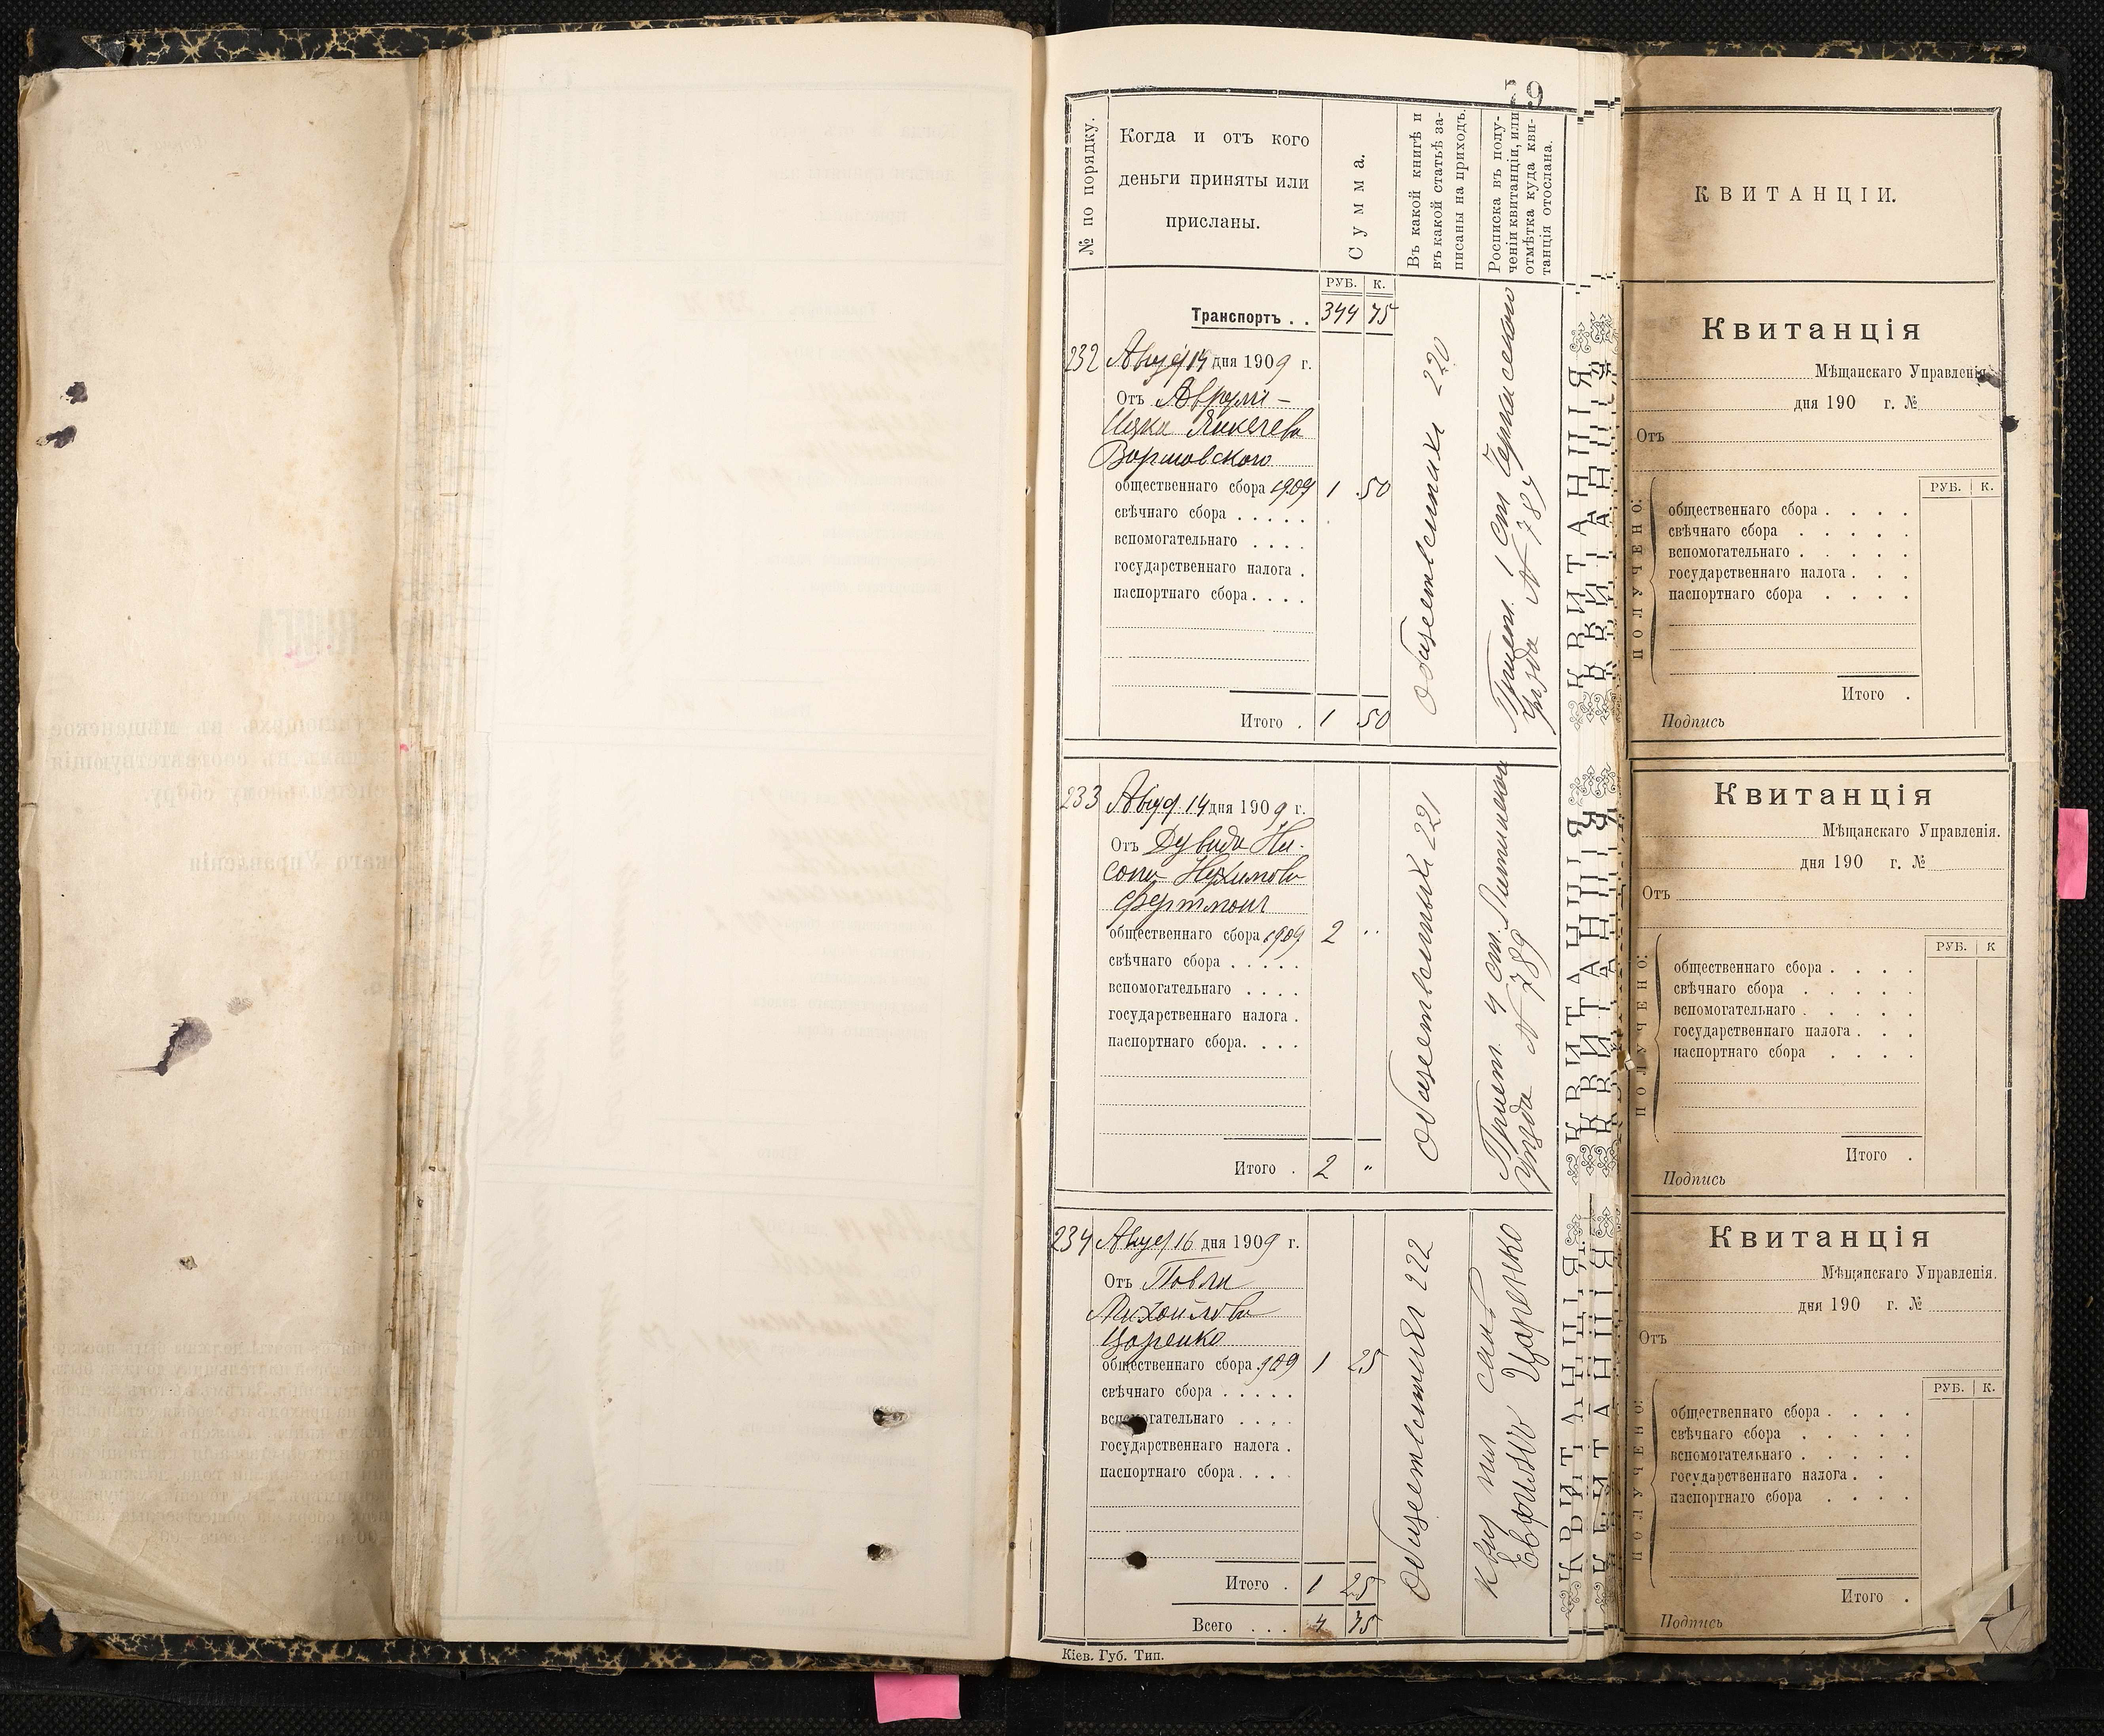 79
№ по порядку.
Когда и отъ кого
деньги приняты или
присланы.
Сумма.
Въ какой книгѣ и
въ какой статьѣ за-
писаны на приходъ.
Росписка въ полу-
ченіи квитанціи, или
отмѣтка куда кви-
танція отослана.
РУБ. К.
Транспортъ . . 344 75
232 Август 14 дня 1909 г.
Отъ Аврум-
Ицка
Варшавского
общественнаго сбора 1909 1 50
свѣчнаго сбора . . . . .
вспомогательнаго . . . .
государственнаго налога .
паспортнаго сбора . . . .
Итого . 1 50
Общественных 220
Прист. 1 ст Черкасского
уезда № 787
233 Август 14 дня 1909 г.
Отъ Дувида Ни-
сона Нухимова
Фертман
общественнаго сбора 1909 2 "
свѣчнаго сбора . . . . .
вспомогательнаго . . . .
государственнаго налога .
паспортнаго сбора. . . .
Итого . 2 "
Общественных 221
Прист. 4 ст.
уезда № 789
234 Август 16 дня 1909 г.
Отъ Павла
Михайлова
Царенко
общественнаго сбора 909 1 25
свѣчнаго сбора . . . . .
вспомогательнаго . . . .
государственнаго налога .
паспортнаго сбора . . . .
Итого . 1 25
Всего . . . 4 75
Общественных 222
Царенко
Кіев. Губ. Тип.
КВИТАНЦІЯ
КВИТАНЦІЯ
КВИТАНЦІЯ
КВИТАНЦІИ.
Квитанція
Мѣщанскаго Управленія.
дня 190 г. №
Отъ
ПОЛУЧЕНО:
РУБ. К.
общественнаго сбора . . . .
свѣчнаго сбора . . . . .
вспомогательнаго . . . . .
государственнаго налога . . .
паспортнаго сбора . . . .
Итого .
Подпись
Квитанція
Мѣщанскаго Управленія.
дня 190 г. №
Отъ
ПОЛУЧЕНО:
РУБ. К
общественнаго сбора . . . .
свѣчнаго сбора . . . . .
вспомогательнаго . . . . .
государственнаго налога . . .
паспортнаго сбора . . . .
Итого .
Подпись
Квитанція
Мѣщанскаго Управленія.
дня 190 г. №
Отъ
ПОЛУЧЕНО:
РУБ. К.
общественнаго сбора . . . .
свѣчнаго сбора . . . . .
вспомогательнаго . . . . .
государственнаго налога . .
паспортнаго сбора . . . .
Итого .
Подпись